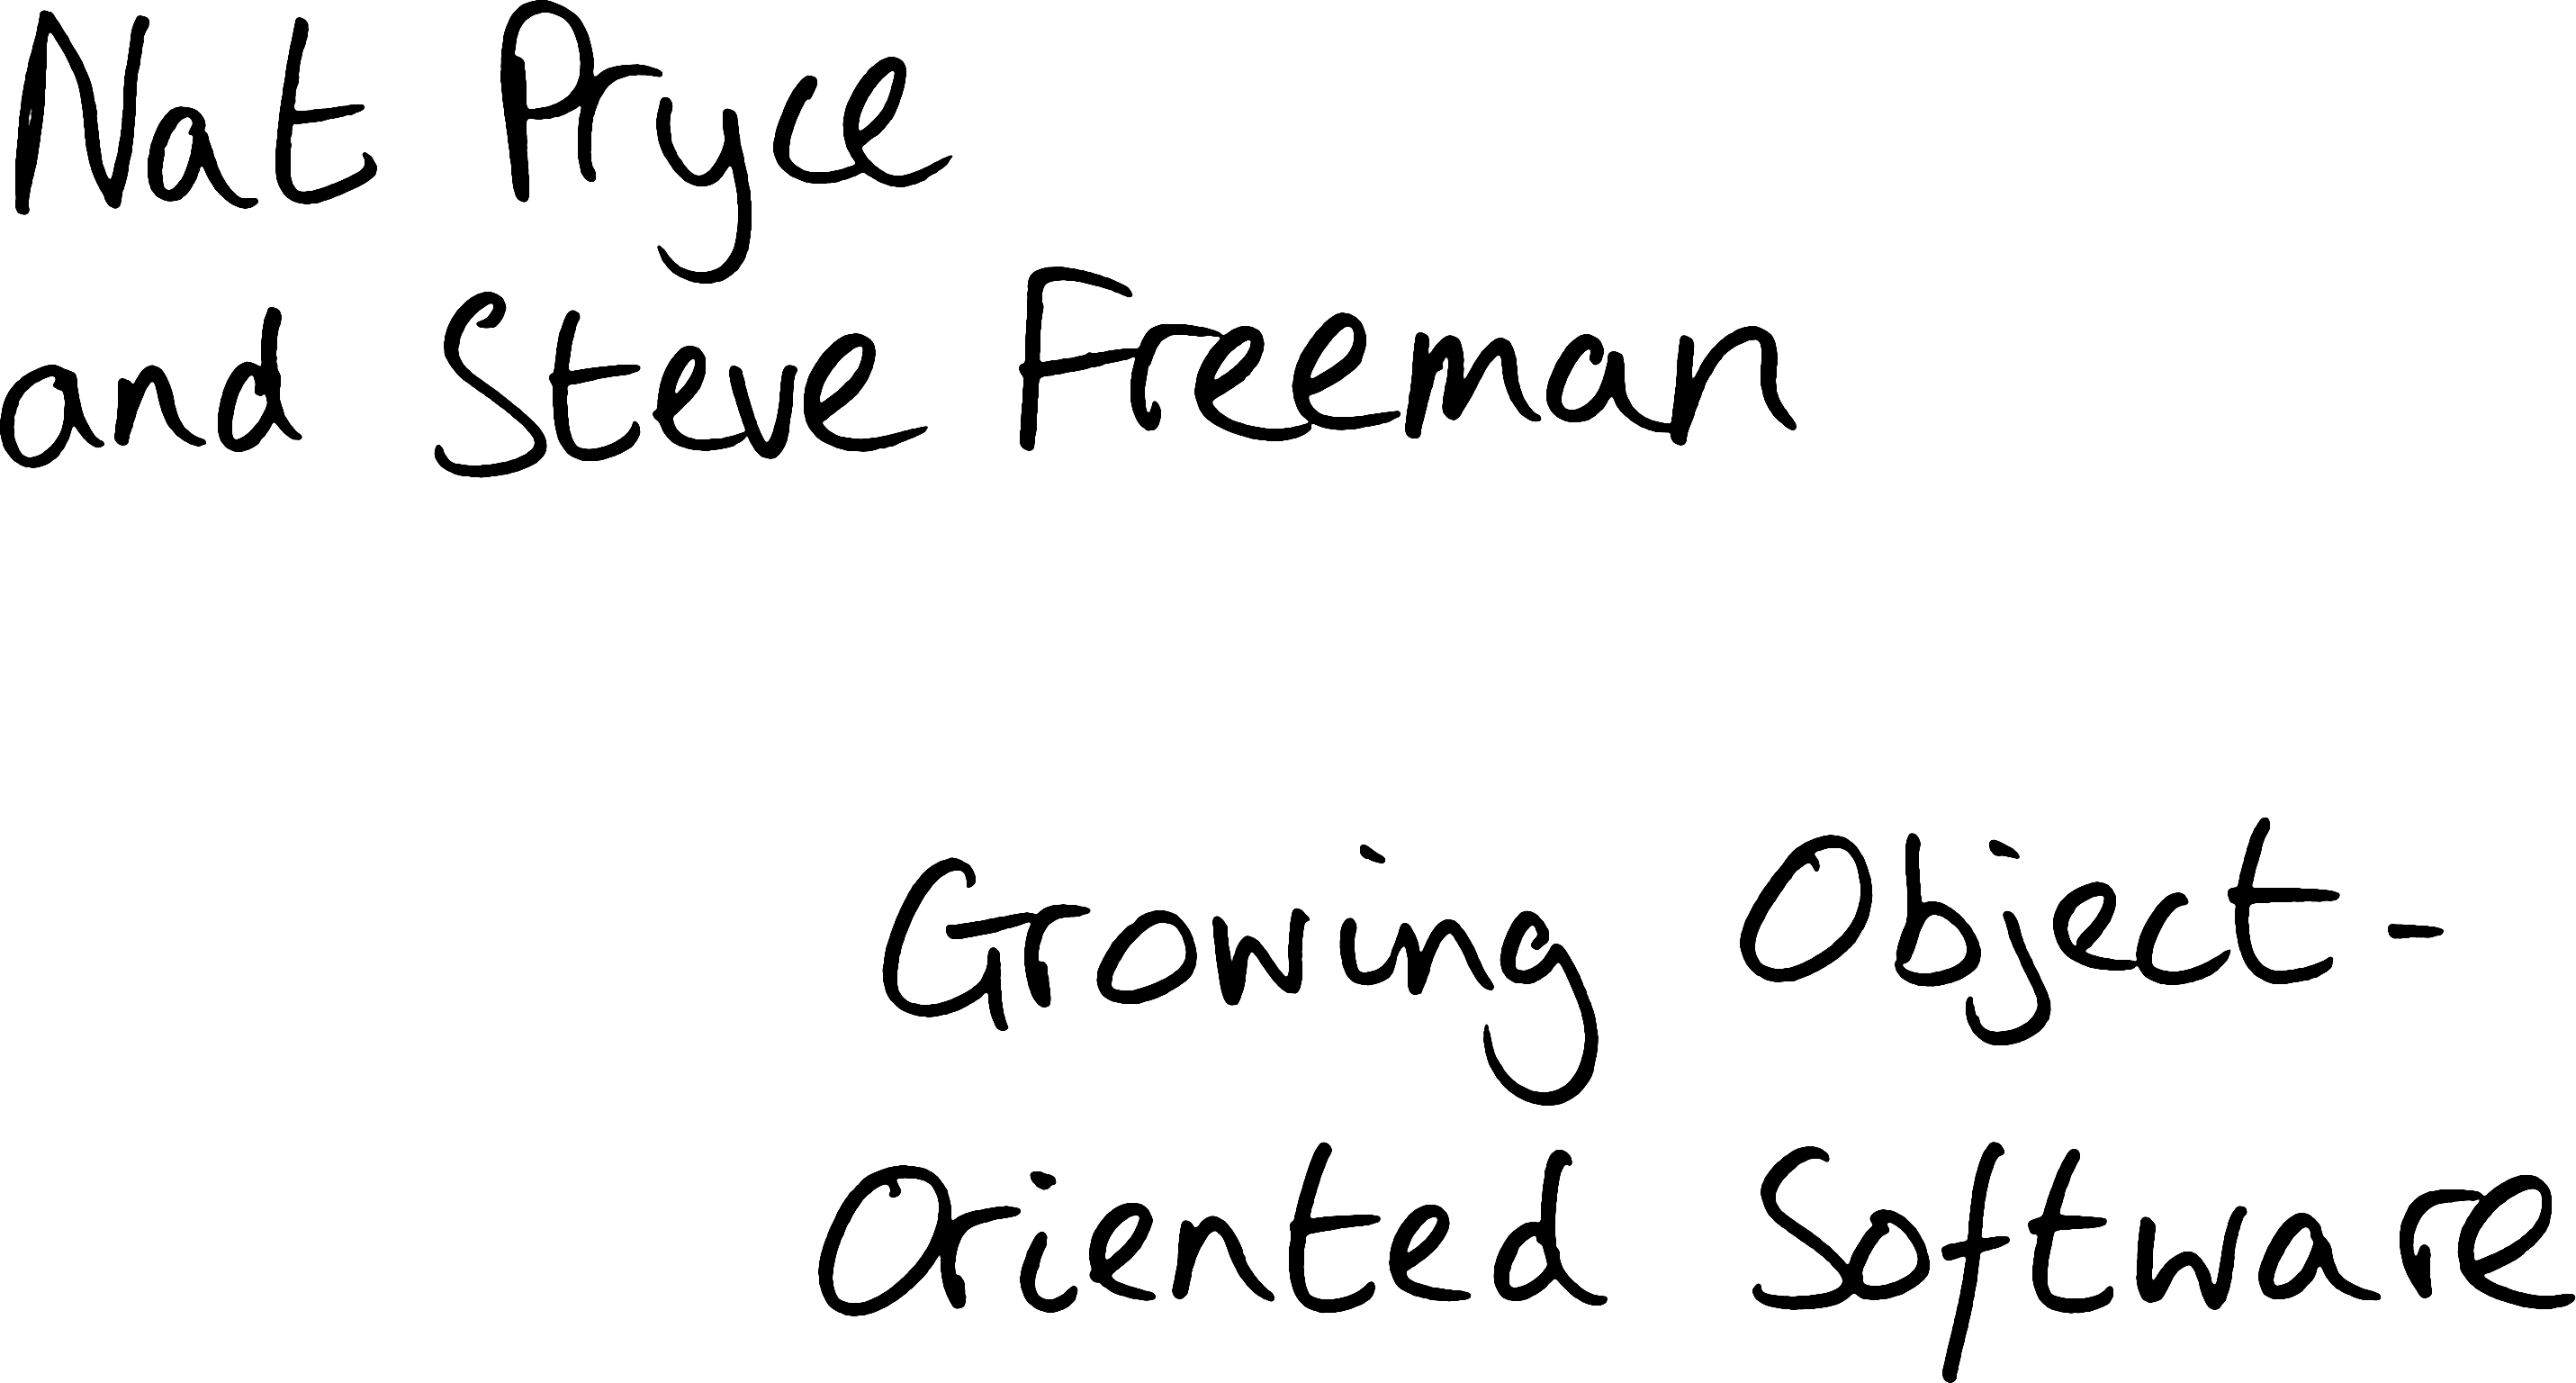 Nat Pryce
and Steve Freeman
Growing Object-
Oriented Software